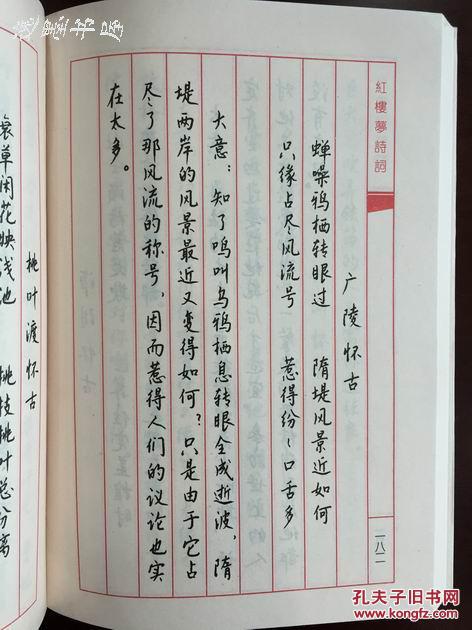 紅樓夢詩詞
一八一
广陵怀古
蝉噪鸦栖转眼过 隋堤风景近如何
只缘占尽风流号 惹得纷纷口舌多
大意：知了鸣叫乌鸦栖息转眼全成逝波，隋
堤两岸的风景最近又变得如何？只是由于它占
尽了那风流的称号，因而惹得人们的议论也实
在太多。
桃叶渡怀古
衰草闲花映浅池 桃枝桃叶总分离
孔夫子旧书网